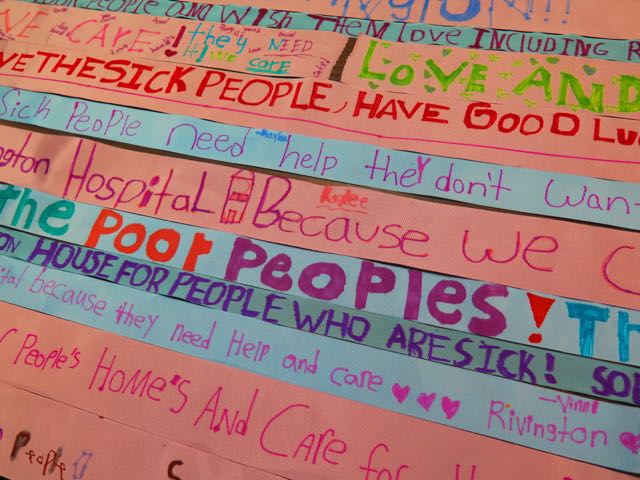 POOR PEOPLE and WISH THEM LOVE INCLUDING R
VE CARE! they NEED
we care
LOVE AND
VE THE SICK PEOPLE, HAVE GOOD LUC
Sick People need help they don't want
ngton Hospital Because we C
Kaylee
The Poor Peoples! Th
ON HOUSE FOR PEOPLE WHO ARE SICK! SO
ital because they need Help and care Rivington
People's Home's And Care for
People